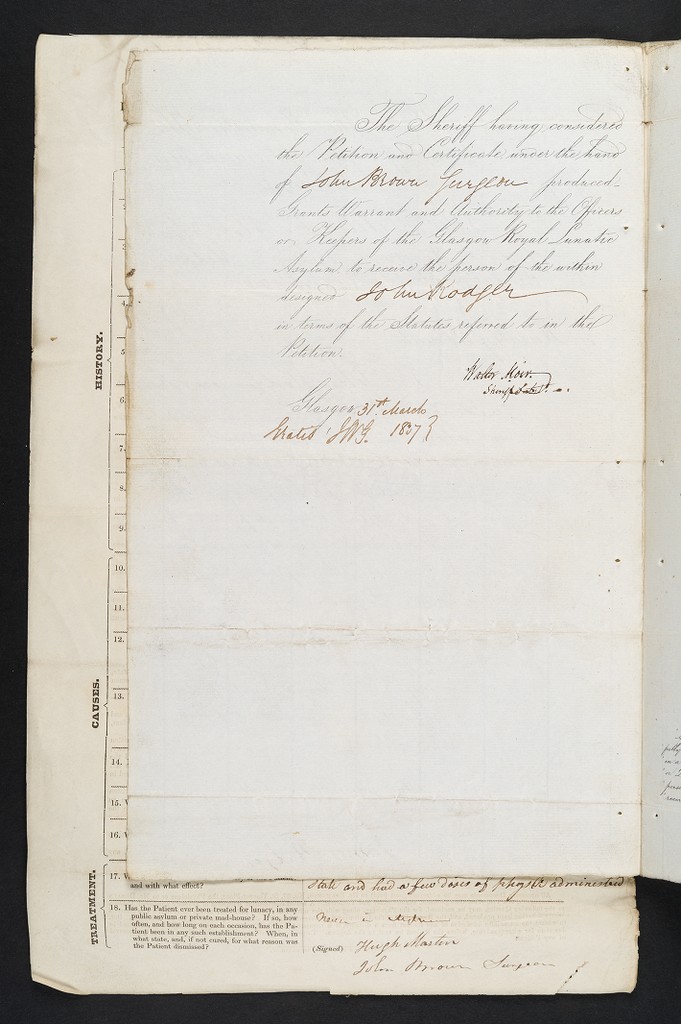 The Sheriff having considered
the Petition and Certificate under the hand
of John Brown Surgeon produced
Grants Warrant and Authority to the Officers
or Keepers of the Glasgow Royal Lunatic
Asylum to receive the person of the within
designed John Rodger
in terms of the Statutes referred to in the
Petition.
Walter Moir.
Glasgow 31st March
1837
HISTORY.
4
5
6
7.
8.
9.
10.
11.
12.
CAUSES.
13.
14.
15.
16.
TREATMENT.
17.
and with what effect?
and had a few doses of physic administred
18. Has the Patient ever been treated for lunacy, in any
public asylum or private mad-house? If so, how
often, and how long on each occasion, has the Pa-
tient been in any such establishment? When, in
what state, and, if not cured, for what reason was
the Patient dismissed?
Never in
(Signed) Hugh Martin
John Brown Surgeon